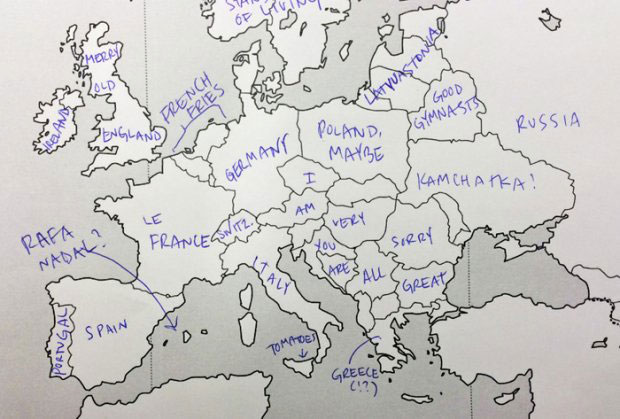 STAN
OF LIVING
MERRY
OLD
ENGLAND
IRELAND
FRENCH
FRIES
LATVIASTONIA
GOOD
GYMNASTS
RUSSIA
GERMANY
POLAND,
MAYBE
I
KAMCHATKA!
LE
FRANCE
SWITZ.
AM
VERY
SORRY
RAFA
NADAL?
ITALY
YOU
ARE
ALL
GREAT
PORTUGAL
SPAIN
TOMATOES
GREECE
(!?)